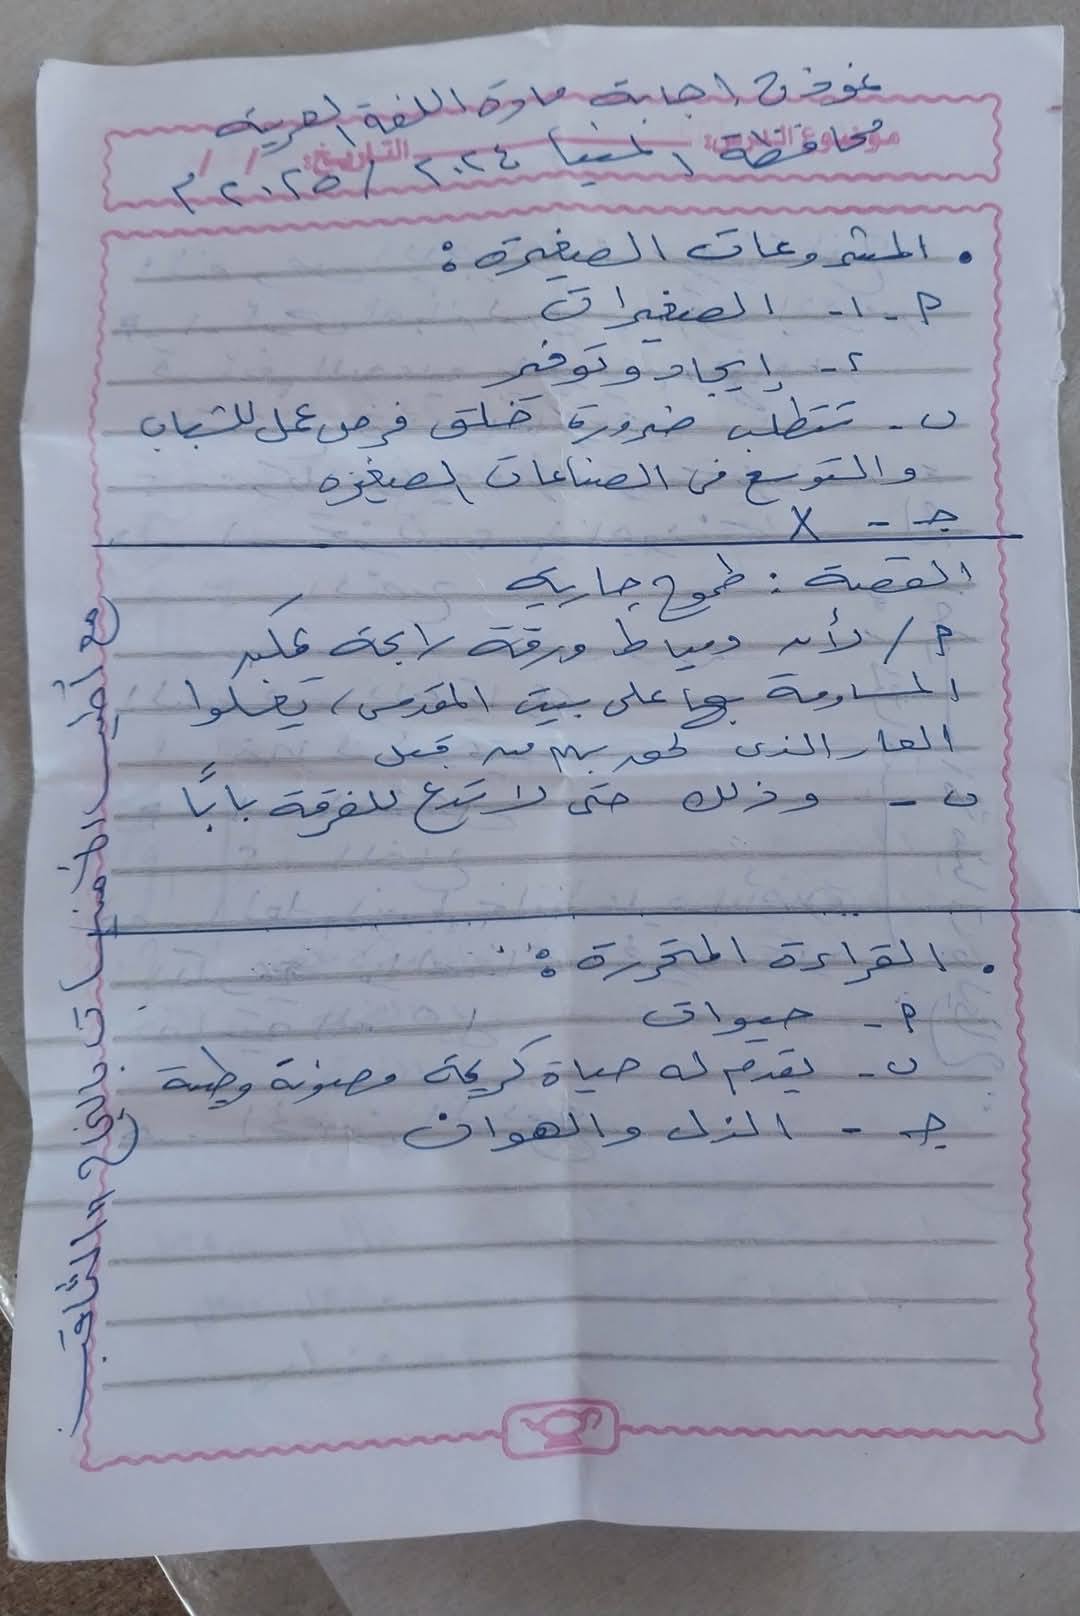 نموذج إجابة مادة اللغة العربية
موضوع الدرس: التاريخ: / /
محافظة المنيا ٢٠٢٤ / ٢٠٢٥ م
• المشروعات الصغيرة:
م - ١ - الصغيرات
٢ - إيجاد وتوفير
ب - تتطلب ضرورة خلق فرص عمل للشباب
والتوسع في الصناعات الصغيرة
جـ - X
القصة: طموح جارية
م / لأن دمياط ورقة رابحة يمكن
المساومة بها على بيت المقدس، يغسلوا
العار الذى لحق بهم من قبل
ب - وذلك حتى لا تدع للفرقة بابًا
• القراءة المتحررة:
م - حيوات
ب - يقدم له حياة كريمة مصونة وطيبة
جـ - الذل والهوان
مع أطيب الأمنيات بالنجاح